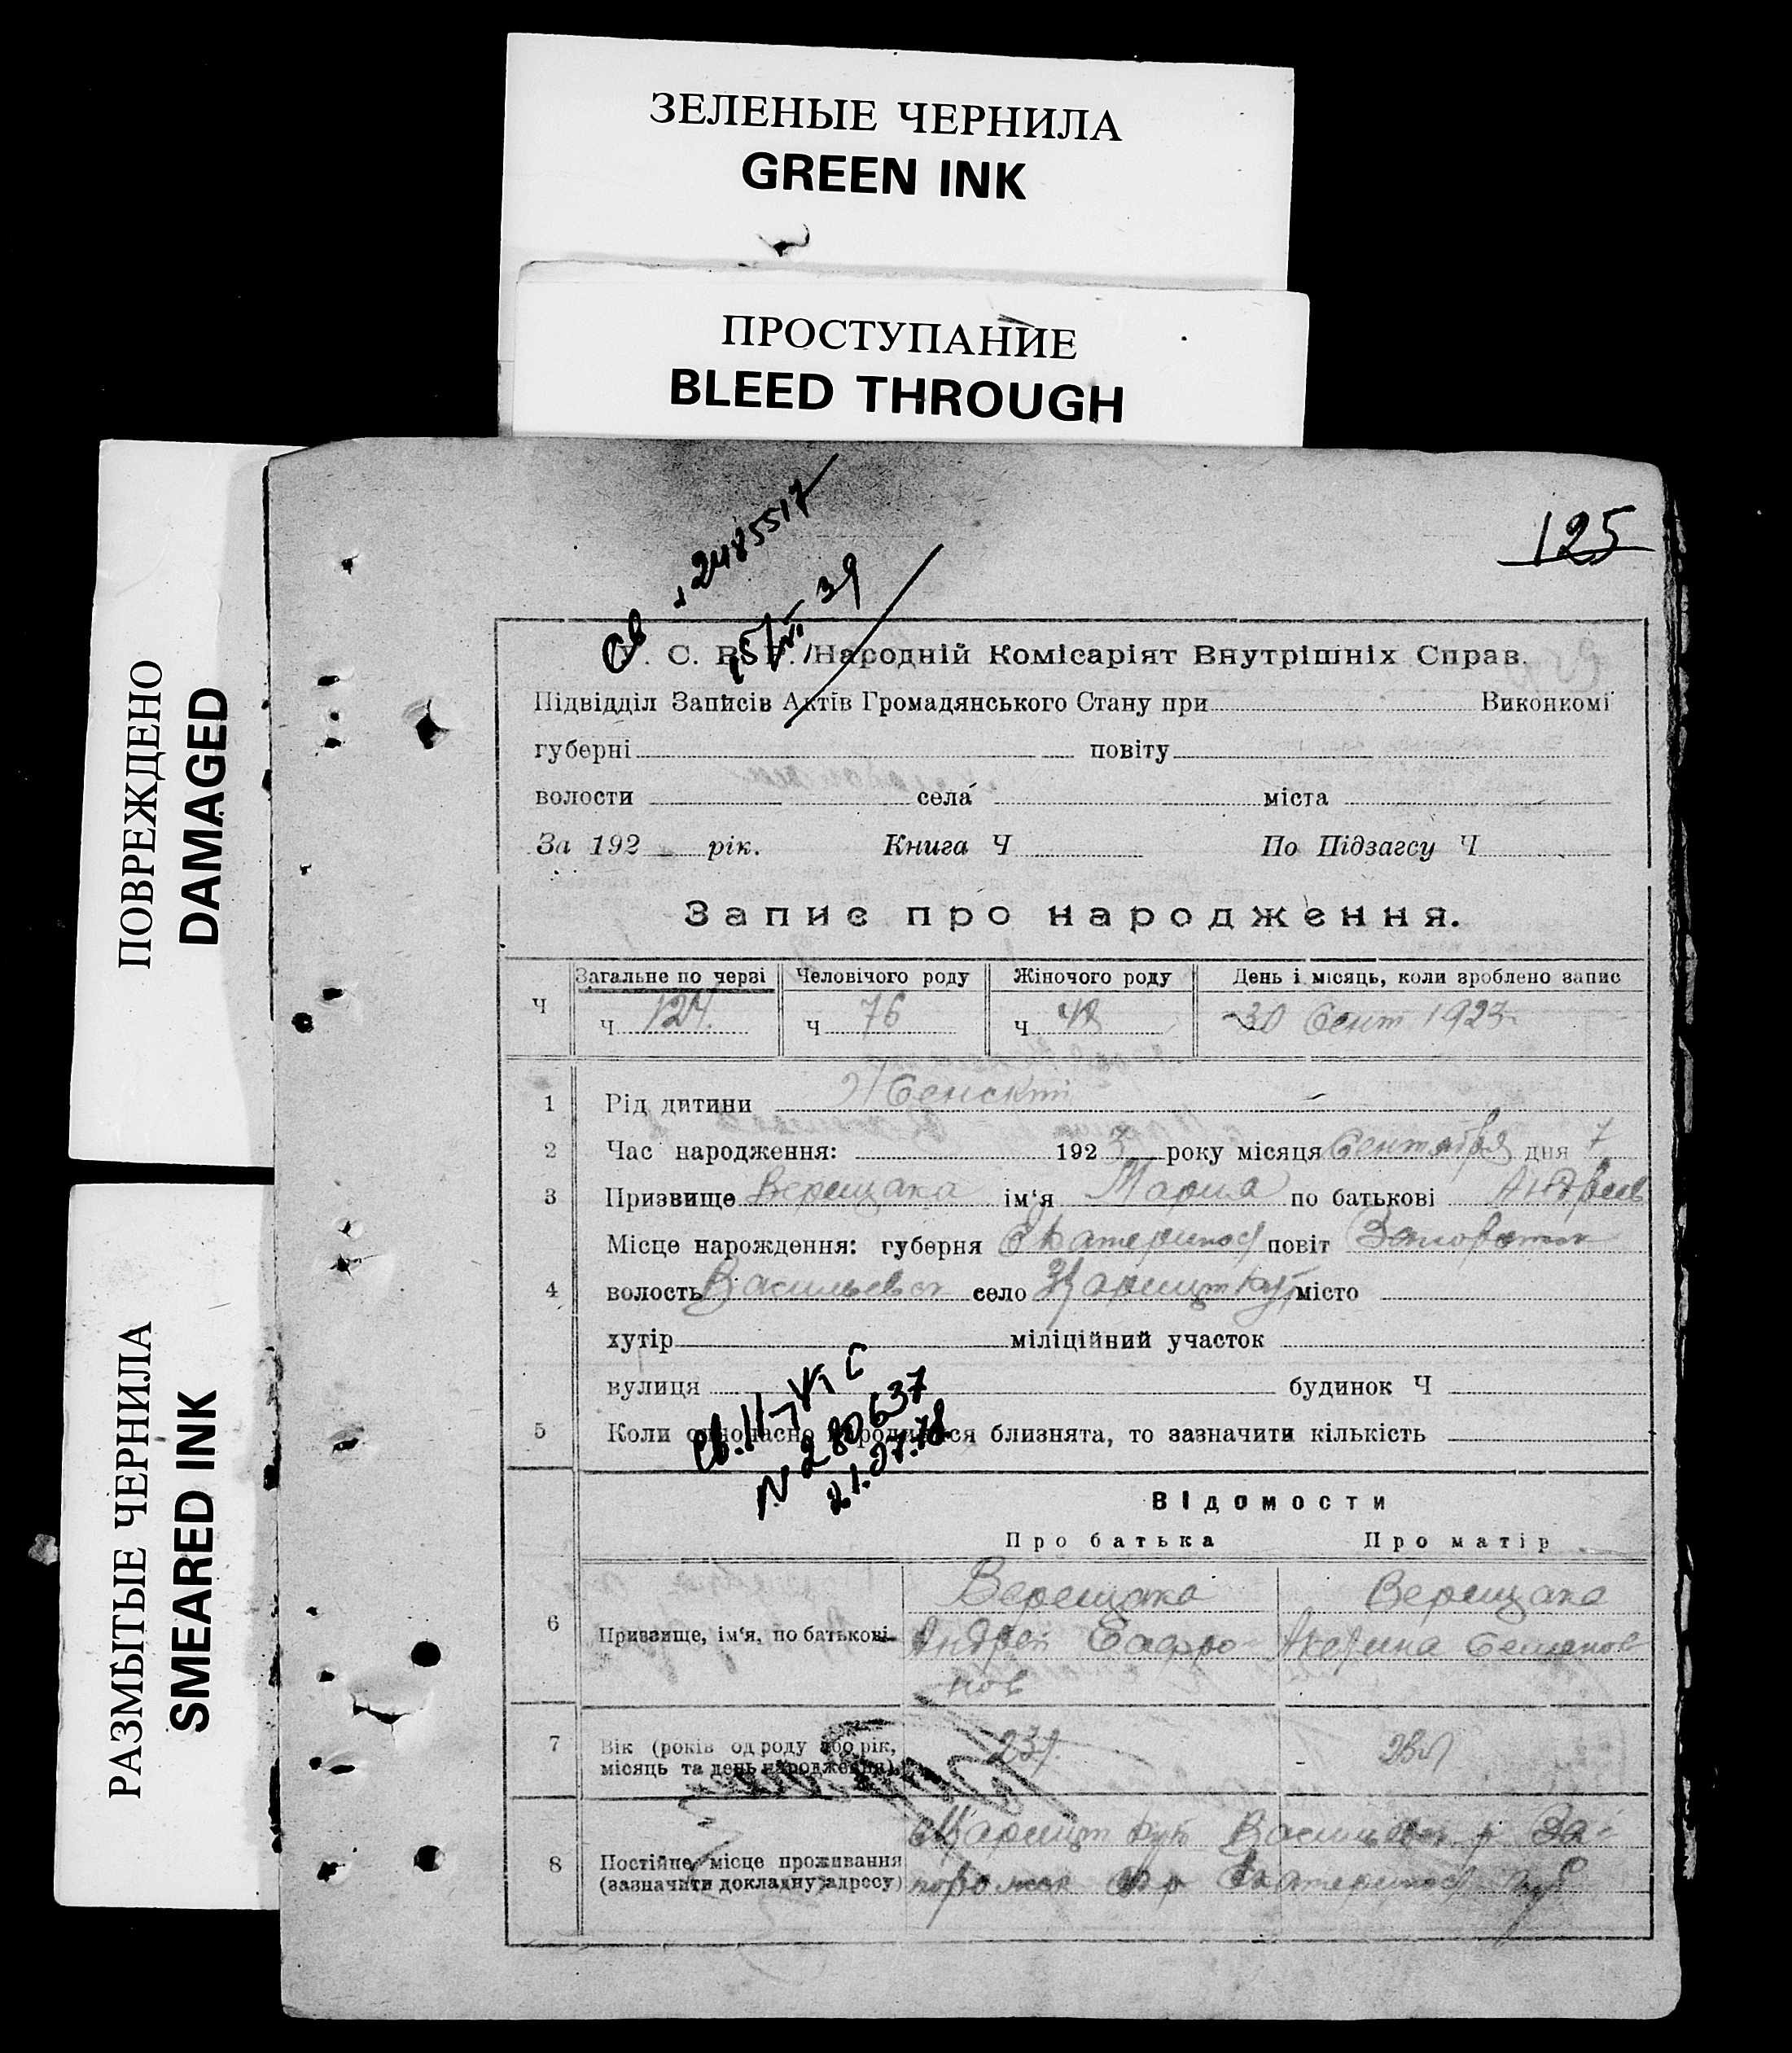 ЗЕЛЕНЫЕ ЧЕРНИЛА
GREEN INK
ПРОСТУПАНИЕ
BLEED THROUGH
ПОВРЕЖДЕНО
DAMAGED
РАЗМЫТЫЕ ЧЕРНИЛА
SMEARED INK
125
Св 2485517
39
С. Народній Комісаріят Внутрішніх Справ.
Підвідділ Записів Актів Громадянського Стану при Виконкомі
губерні повіту
волости села міста
За 192 рік. Книга Ч По Підзагсу Ч
Запис про народження.
Загальне по черзі Человічого роду Жіночого роду День і місяць, коли зроблено запис
Ч Ч 124. Ч 76 Ч 48 30 Сент 1923
1 Рід дитини Женскій
2 Час народження: 1923 року місяця Сентября дня 7
3 Призвище Верещака ім'я Мария по батькові Андреев
Місце нарождення: губерня Екатеринос повіт
4 волость Васильевск село Царицин Кут місто
хутір міліційний участок
вулиця будинок Ч
св. II-ЯС
N 280637
21.07.78
5 Коли одночасно народилися близнята, то зазначити кількість
Відомости
Про батька Про матір
6 Призвище, ім'я, по батькові Верещака Верещака
Андрей Сафро- Акелина Семенов
нов
7 Вік (років од роду або рік, 23 23
місяць та день народження)
8 Постійне місце проживання Царицин Кут Васильевск р За-
(зазначити докладну адресу) порожск Екатеринос губ